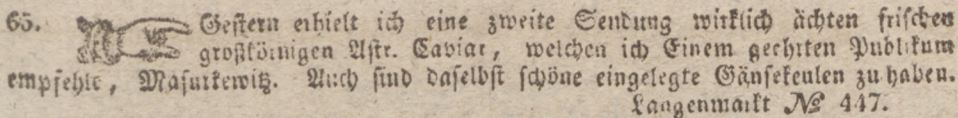 65. Gestern erhielt ich eine zweite Sendung wirklich ächten frischen
großkörnigen Astr. Caviar, welchen ich Einem geehrten Publikum
empfehle, Masurkewitz. Auch sind daselbst schöne eingelegte Gänsekeulen zu haben.
Langenmarkt № 447.